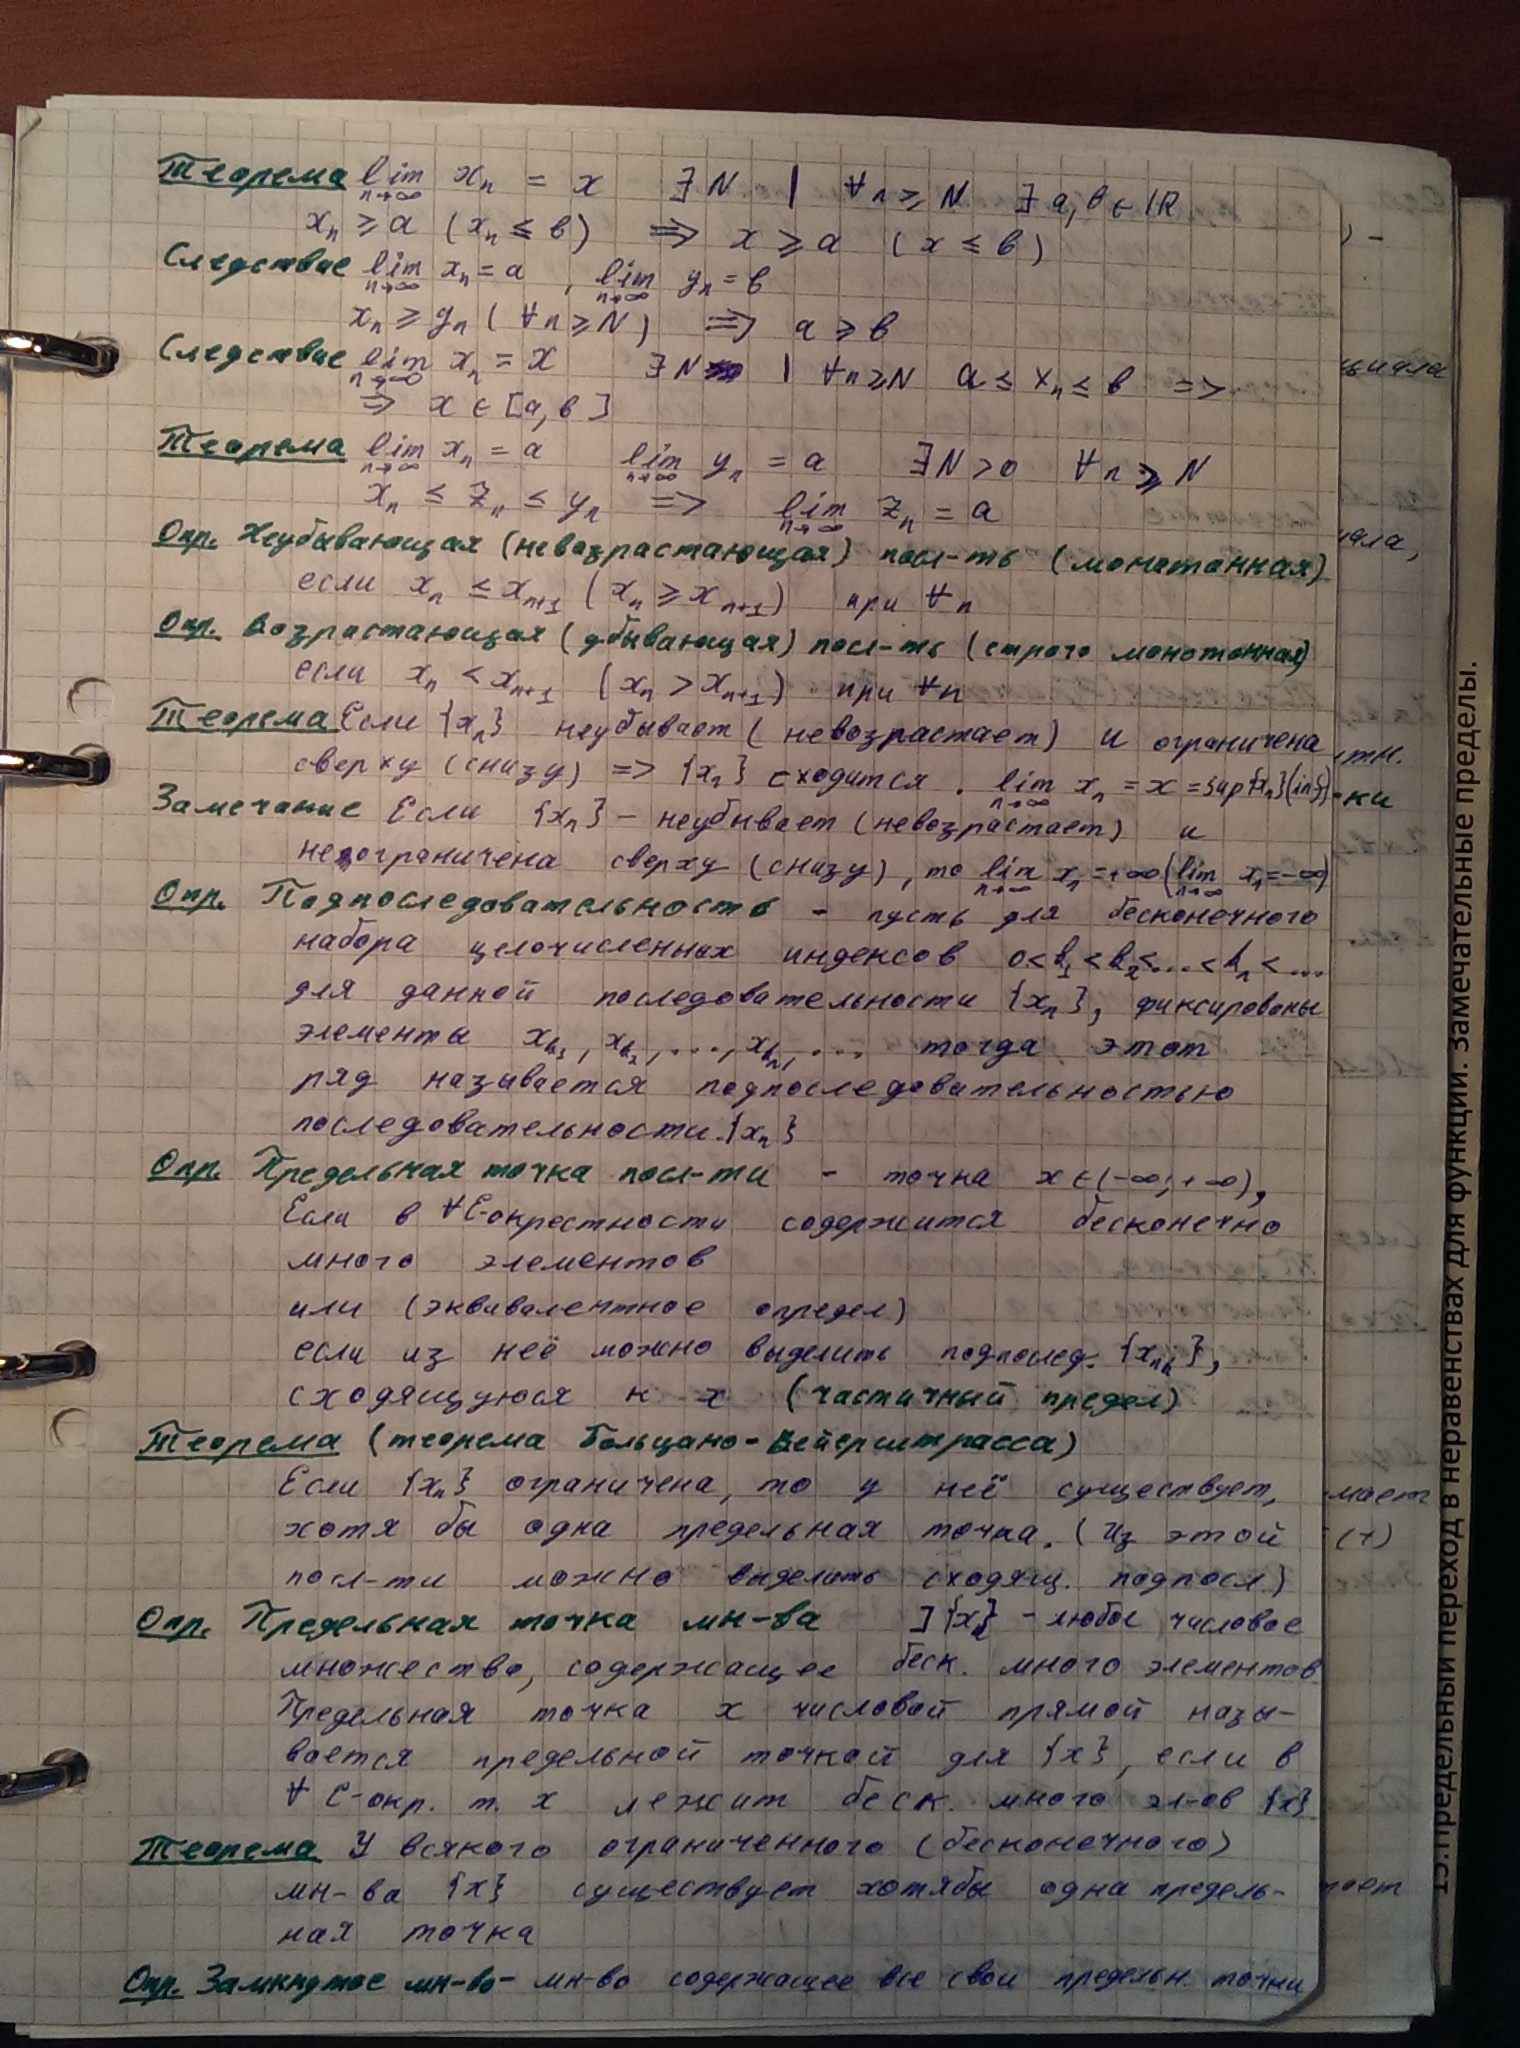 Теорема lim n→∞ xₙ = x ∃ N | ∀ n ⩾ N ∃ a, b ∈ ℝ
xₙ ⩾ a (xₙ ≤ b) ⇒ x ⩾ a (x ≤ b)
Следствие lim n→∞ xₙ = a , lim n→∞ yₙ = b
xₙ ⩾ yₙ (∀ n ⩾ N) ⇒ a ⩾ b
Следствие lim n→∞ xₙ = x ∃ N | ∀ n ⩾ N a ≤ xₙ ≤ b =>
=> x ∈ [a, b]
Теорема lim n→∞ xₙ = a lim n→∞ yₙ = a ∃ N > 0 ∀ n ⩾ N
xₙ ≤ zₙ ≤ yₙ => lim n→∞ zₙ = a
Опр. Неубывающая (невозрастающая) посл-ть (монотонная)
если xₙ ≤ xₙ₊₁ (xₙ ⩾ xₙ₊₁) при ∀ n
Опр. Возрастающая (убывающая) посл-ть (строго монотонная)
если xₙ < xₙ₊₁ (xₙ > xₙ₊₁) при ∀ n
Теорема Если {xₙ} неубывает (невозрастает) и ограничена
сверху (снизу) => {xₙ} сходится. lim n→∞ xₙ = x = sup{xₙ} (inf)
Замечание Если {xₙ} – неубывает (невозрастает) и
неограничена сверху (снизу), то lim n→∞ xₙ = +∞ (lim n→∞ xₙ = -∞)
Опр. Подпоследовательность – пусть для бесконечного
набора целочисленных индексов 0 < k₁ < k₂ < ... < kₙ < ...
для данной последовательности {xₙ}, фиксированы
элементы x_k₁, x_k₂, ..., x_kₙ, ... тогда этот
ряд называется подпоследовательностью
последовательности {xₙ}
Опр. Предельная точка посл-ти – точка x ∈ (-∞; +∞),
Если в ∀ Ɛ-окрестности содержится бесконечно
много элементов
или (эквивалентное определ)
если из неё можно выделить подпослед. {x_nₖ},
сходящуюся к x (частичный предел)
Теорема (теорема Больцано-Вейерштрасса)
Если {xₙ} ограничена, то у неё существует,
хотя бы одна предельная точка. (Из этой
посл-ти можно выделить сходящ. подпосл.)
Опр. Предельная точка мн-ва ] {x} – любое числовое
множество, содержащее беск. много элементов
Предельная точка x числовой прямой назы-
вается предельной точкой для {x}, если в
∀ Ɛ-окр. т. x лежит беск. много эл-ов {x}
Теорема У всякого ограниченного (бесконечного)
мн-ва {x} существует хотябы одна предель-
ная точка
Опр. Замкнутое мн-во – мн-во содержащее все свои предельн. точки
15. Предельный переход в неравенствах для функции. замечательные пределы.